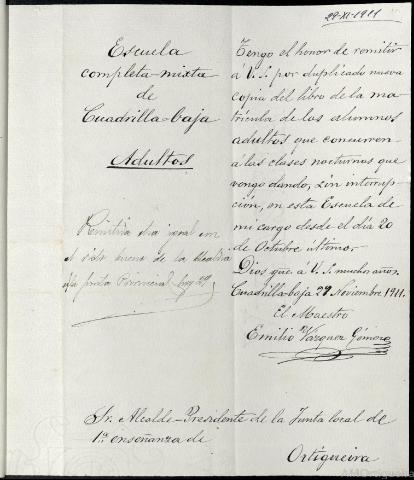 29-XI-1911
Escuela
completa-mixta
de
Cuadrilla-baja
Adultos
Tengo el honor de remitir
á V. S. por duplicado nueva
copia del libro de la ma-
trícula de los alumnos
adultos que concurren
á las clases nocturnas que
vengo dando, sin interrup-
ción, en esta Escuela de
mi cargo desde el día 20
de Octubre último.
Dios gue á V. S. muchos años.
Cuadrilla-baja 29 Noviembre 1911.
El Maestro
Emilio Vázquez Gómez
de la Alcaldía
Sr. Alcalde-Presidente de la Junta local de
1ª enseñanza de
Ortigueira